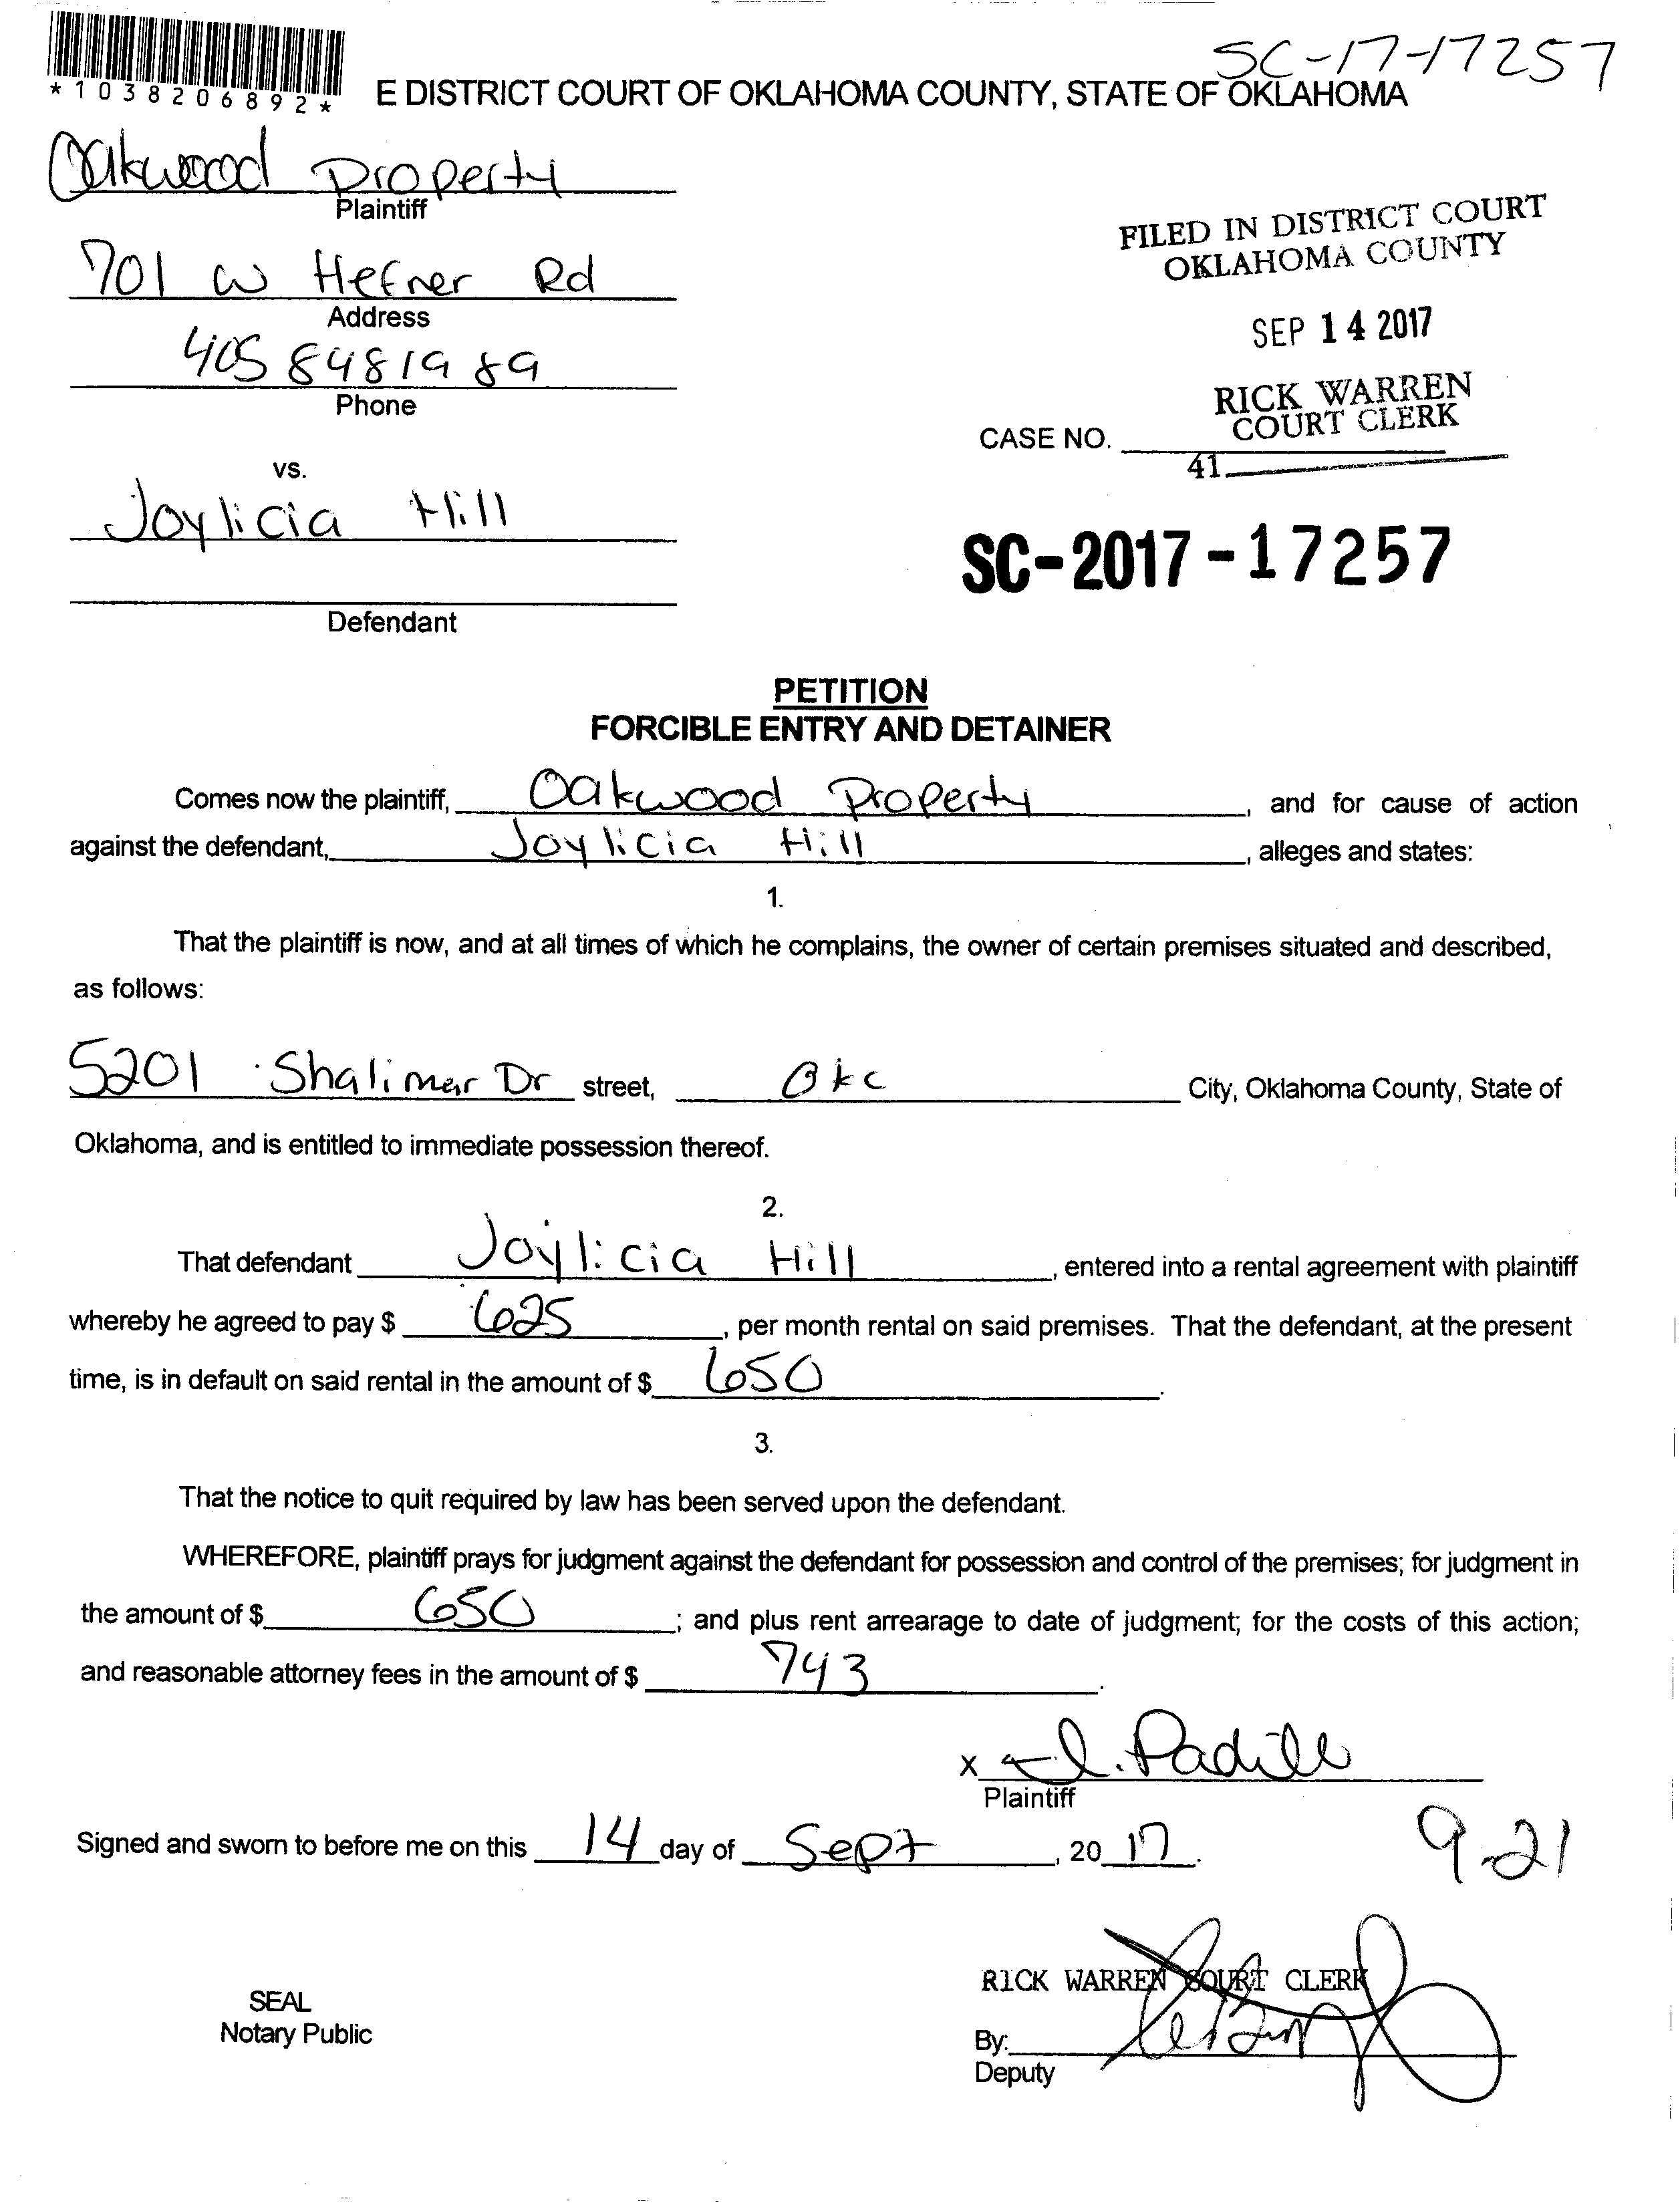 SC-17-17257
*1038206892*
E DISTRICT COURT OF OKLAHOMA COUNTY, STATE OF OKLAHOMA
Oakwood Property
Plaintiff
701 W Hefner Rd
Address
405 8481989
Phone
FILED IN DISTRICT COURT
OKLAHOMA COUNTY
SEP 14 2017
RICK WARREN
COURT CLERK
CASE NO.
41
vs.
Joylicia Hill
Defendant
SC-2017-17257
PETITION
FORCIBLE ENTRY AND DETAINER
Comes now the plaintiff, Oakwood Property, and for cause of action
against the defendant, Joylicia Hill, alleges and states:
1.
That the plaintiff is now, and at all times of which he complains, the owner of certain premises situated and described,
as follows:
5201 Shalimar Dr street, Okc City, Oklahoma County, State of
Oklahoma, and is entitled to immediate possession thereof.
2.
That defendant Joylicia Hill, entered into a rental agreement with plaintiff
whereby he agreed to pay $ 625, per month rental on said premises. That the defendant, at the present
time, is in default on said rental in the amount of $ 650.
3.
That the notice to quit required by law has been served upon the defendant.
WHEREFORE, plaintiff prays for judgment against the defendant for possession and control of the premises; for judgment in
the amount of $ 650; and plus rent arrearage to date of judgment; for the costs of this action;
and reasonable attorney fees in the amount of $ 743.
x I. Padilla
Plaintiff
Signed and sworn to before me on this 14 day of Sept, 2017.
9-21
RICK WARREN COURT CLERK
SEAL
Notary Public
By:
Deputy